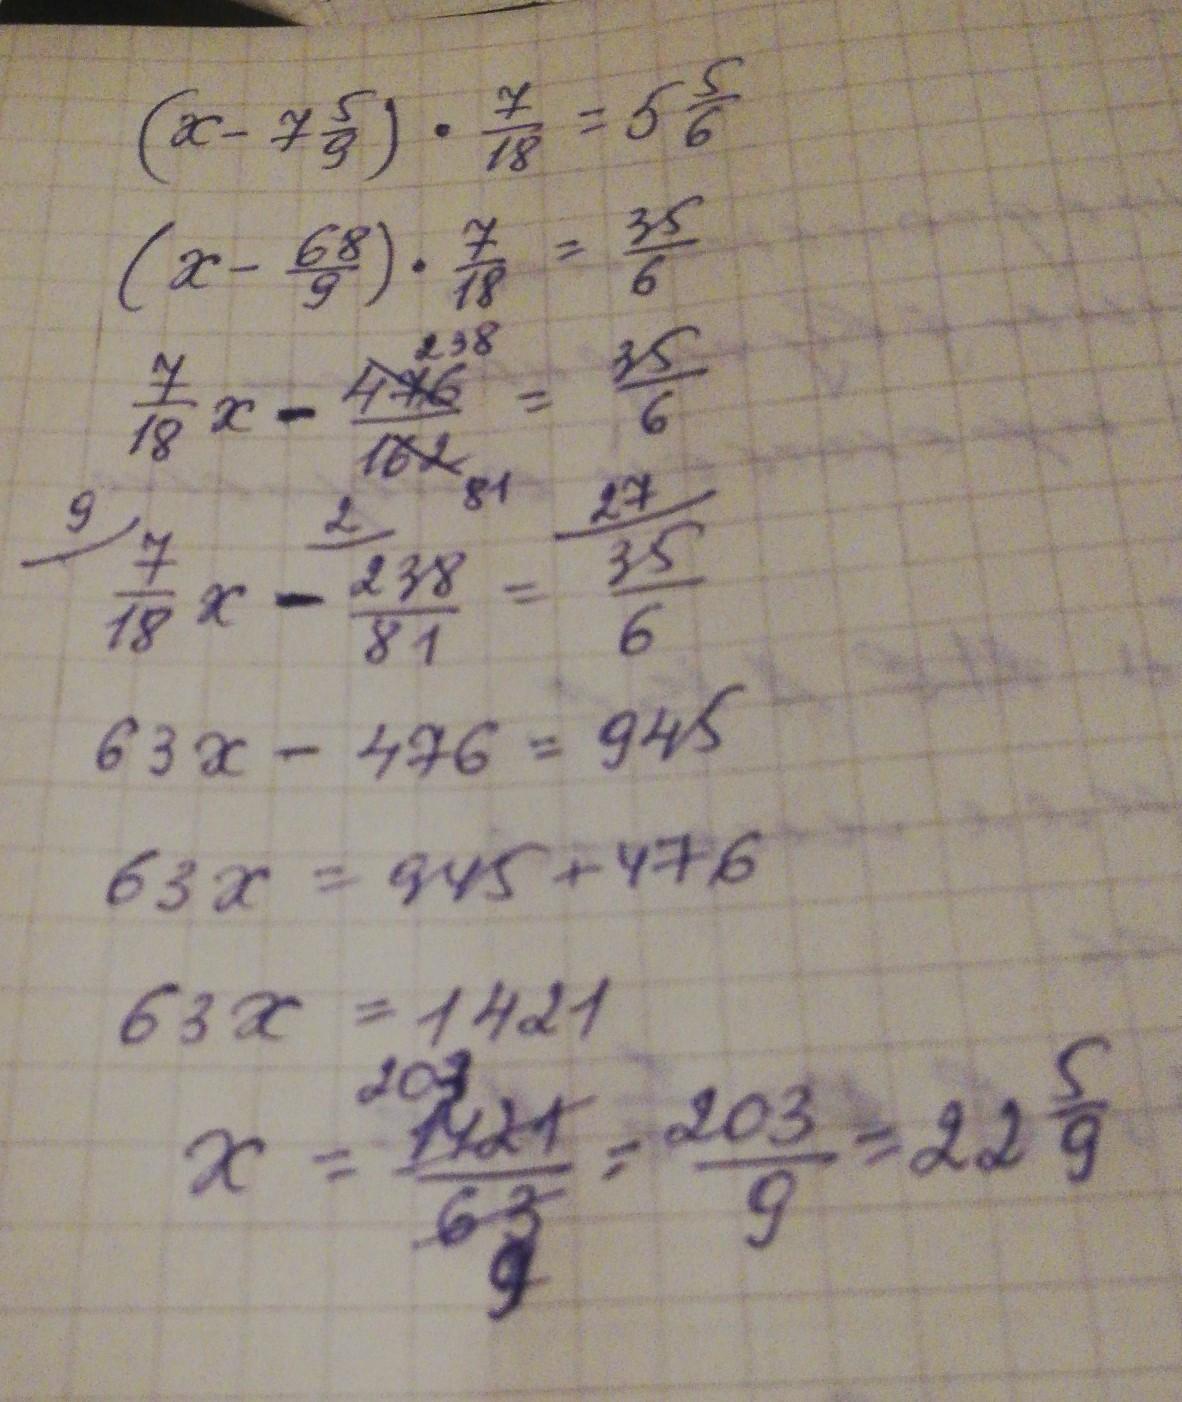 (x - 7 5/9) · 7/18 = 5 5/6
(x - 68/9) · 7/18 = 35/6
238
7/18 x - 476/162 = 35/6
81
9 2 27
7/18 x - 238/81 = 35/6
63x - 476 = 945
63x = 945 + 476
63x = 1421
203
x = 1421/63 = 203/9 = 22 5/9
9